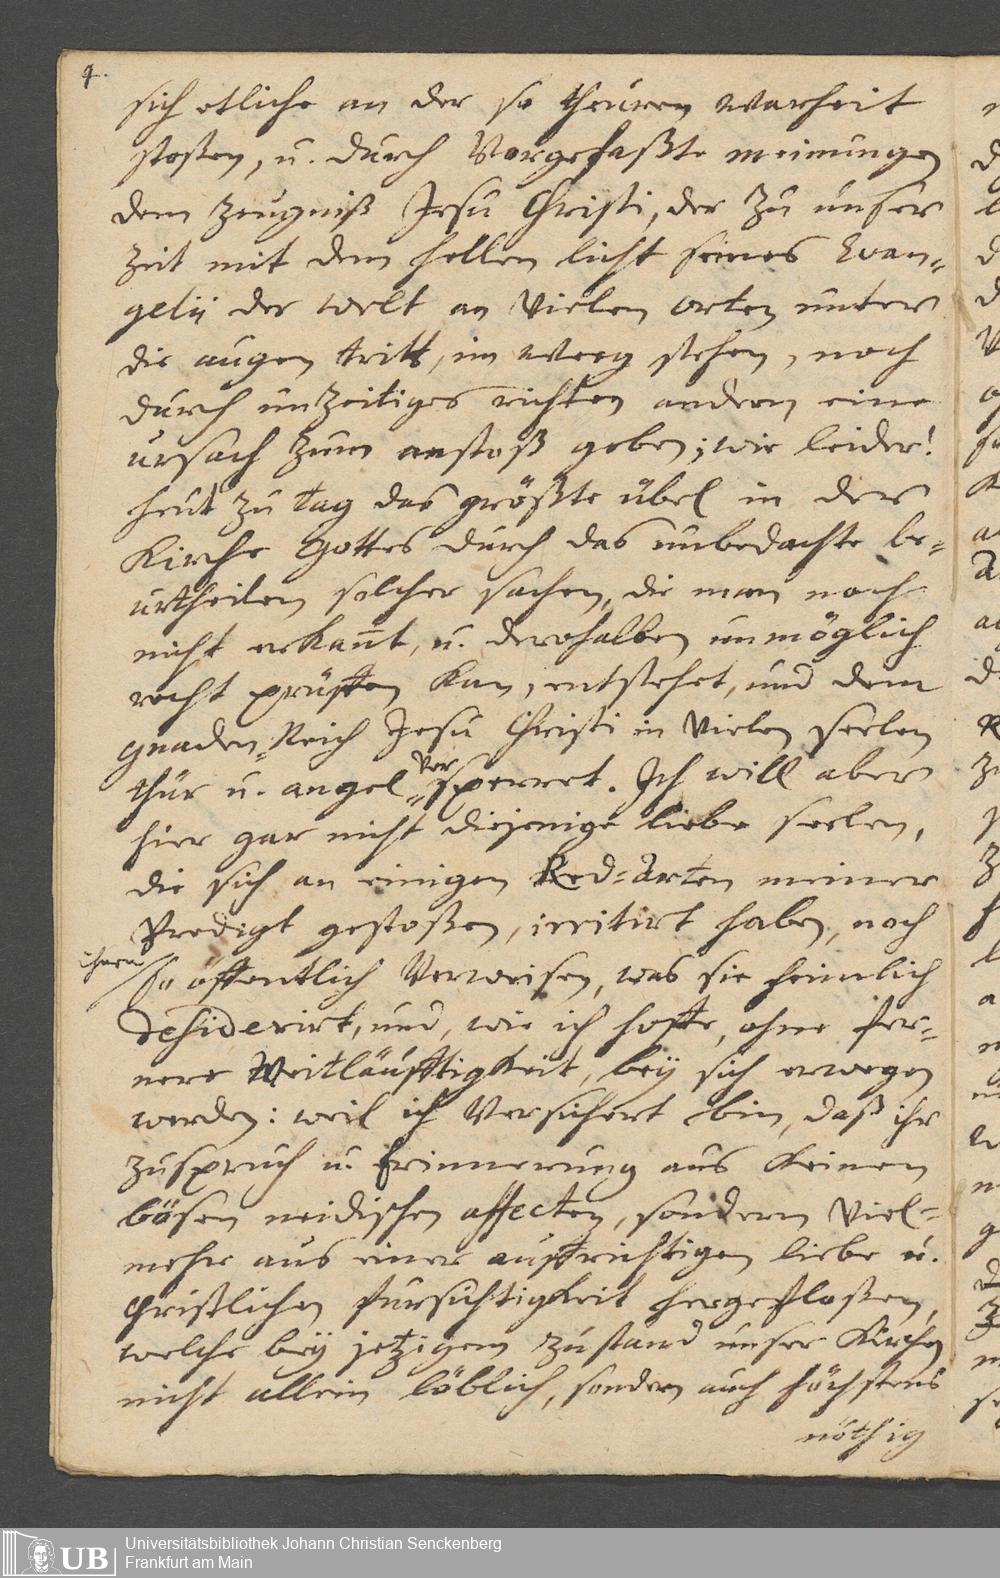 4.
sich etliche an der so theuren warheit
stoßen, u. durch Vorgefaßte meinungen
dem Zeugniß Jesu Christi, der Zu unser
Zeit mit dem hellen licht seines Evan-
gelii der welt an Vielen orten unter
die augen tritt, im weeg stehen, noch
durch unZeitiges richten andern eine
ursach Zum anstoß geben; wie leider!
heut zu tag das größte übel in der
Kirche Gottes durch das unbedachte be-
urtheilen solcher sachen, die man noch
nicht erkañt, u. derohalben unmöglich
recht prüffen kan, entstehet, und dem
gnaden-Reich Jesu Christi in Vielen seelen
thür u. angel Versperret. Ich will aber
hier gar nicht diejenige liebe seelen,
die sich an einigen Red-Arten meiner
Predigt gestoßen, irritirt haben, noch
ihnen so öffentlich Verweisen, was sie heimlich
desiderirt, und, wie ich hoffe, ohne fer-
nere Weitläufftigkeit, beÿ sich erwegen
werden: weil ich Versichert bin, daß ihr
Zuspruch u. Erinnerung aus keinen
bösen neidischen affecten, sondern Viel-
mehr aus einer auffrichtigen liebe u.
Christlichen fürsichtigkeit hergefloßen,
welche beÿ jetzigem Zustand unser Kirchen
nicht allein löblich, sondern auch höchstens
nöthig
UB
Universitätsbibliothek Johann Christian Senckenberg
Frankfurt am Main